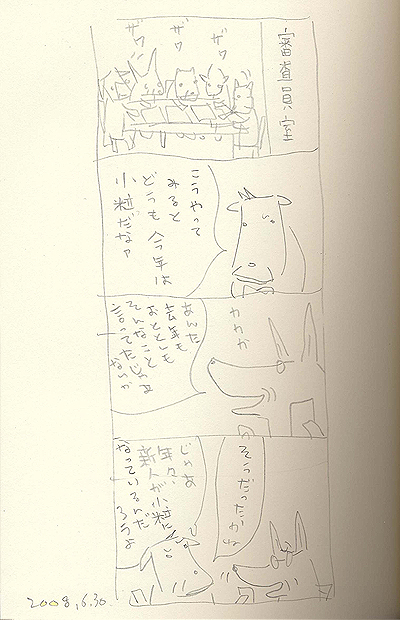 審査員室
ザワ
ザワ
ザワ
こうやって
みると
どうも今年は
小粒だなァ
わわわ
あんた
去年も
おととしも
そんなこと
言ってたじゃ
ないか
そうだったかね
じゃあ
年々、
新人が小粒に
なっているんだ
ろうよ
2008,6.30